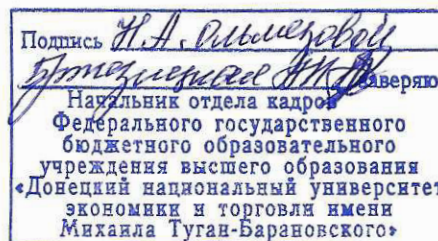 Подпись Н.А. Ольмезовой
заверяю
Начальник отдела кадров
Федерального государственного
бюджетного образовательного
учреждения высшего образования
«Донецкий национальный университет
экономики и торговли имени
Михаила Туган-Барановского»